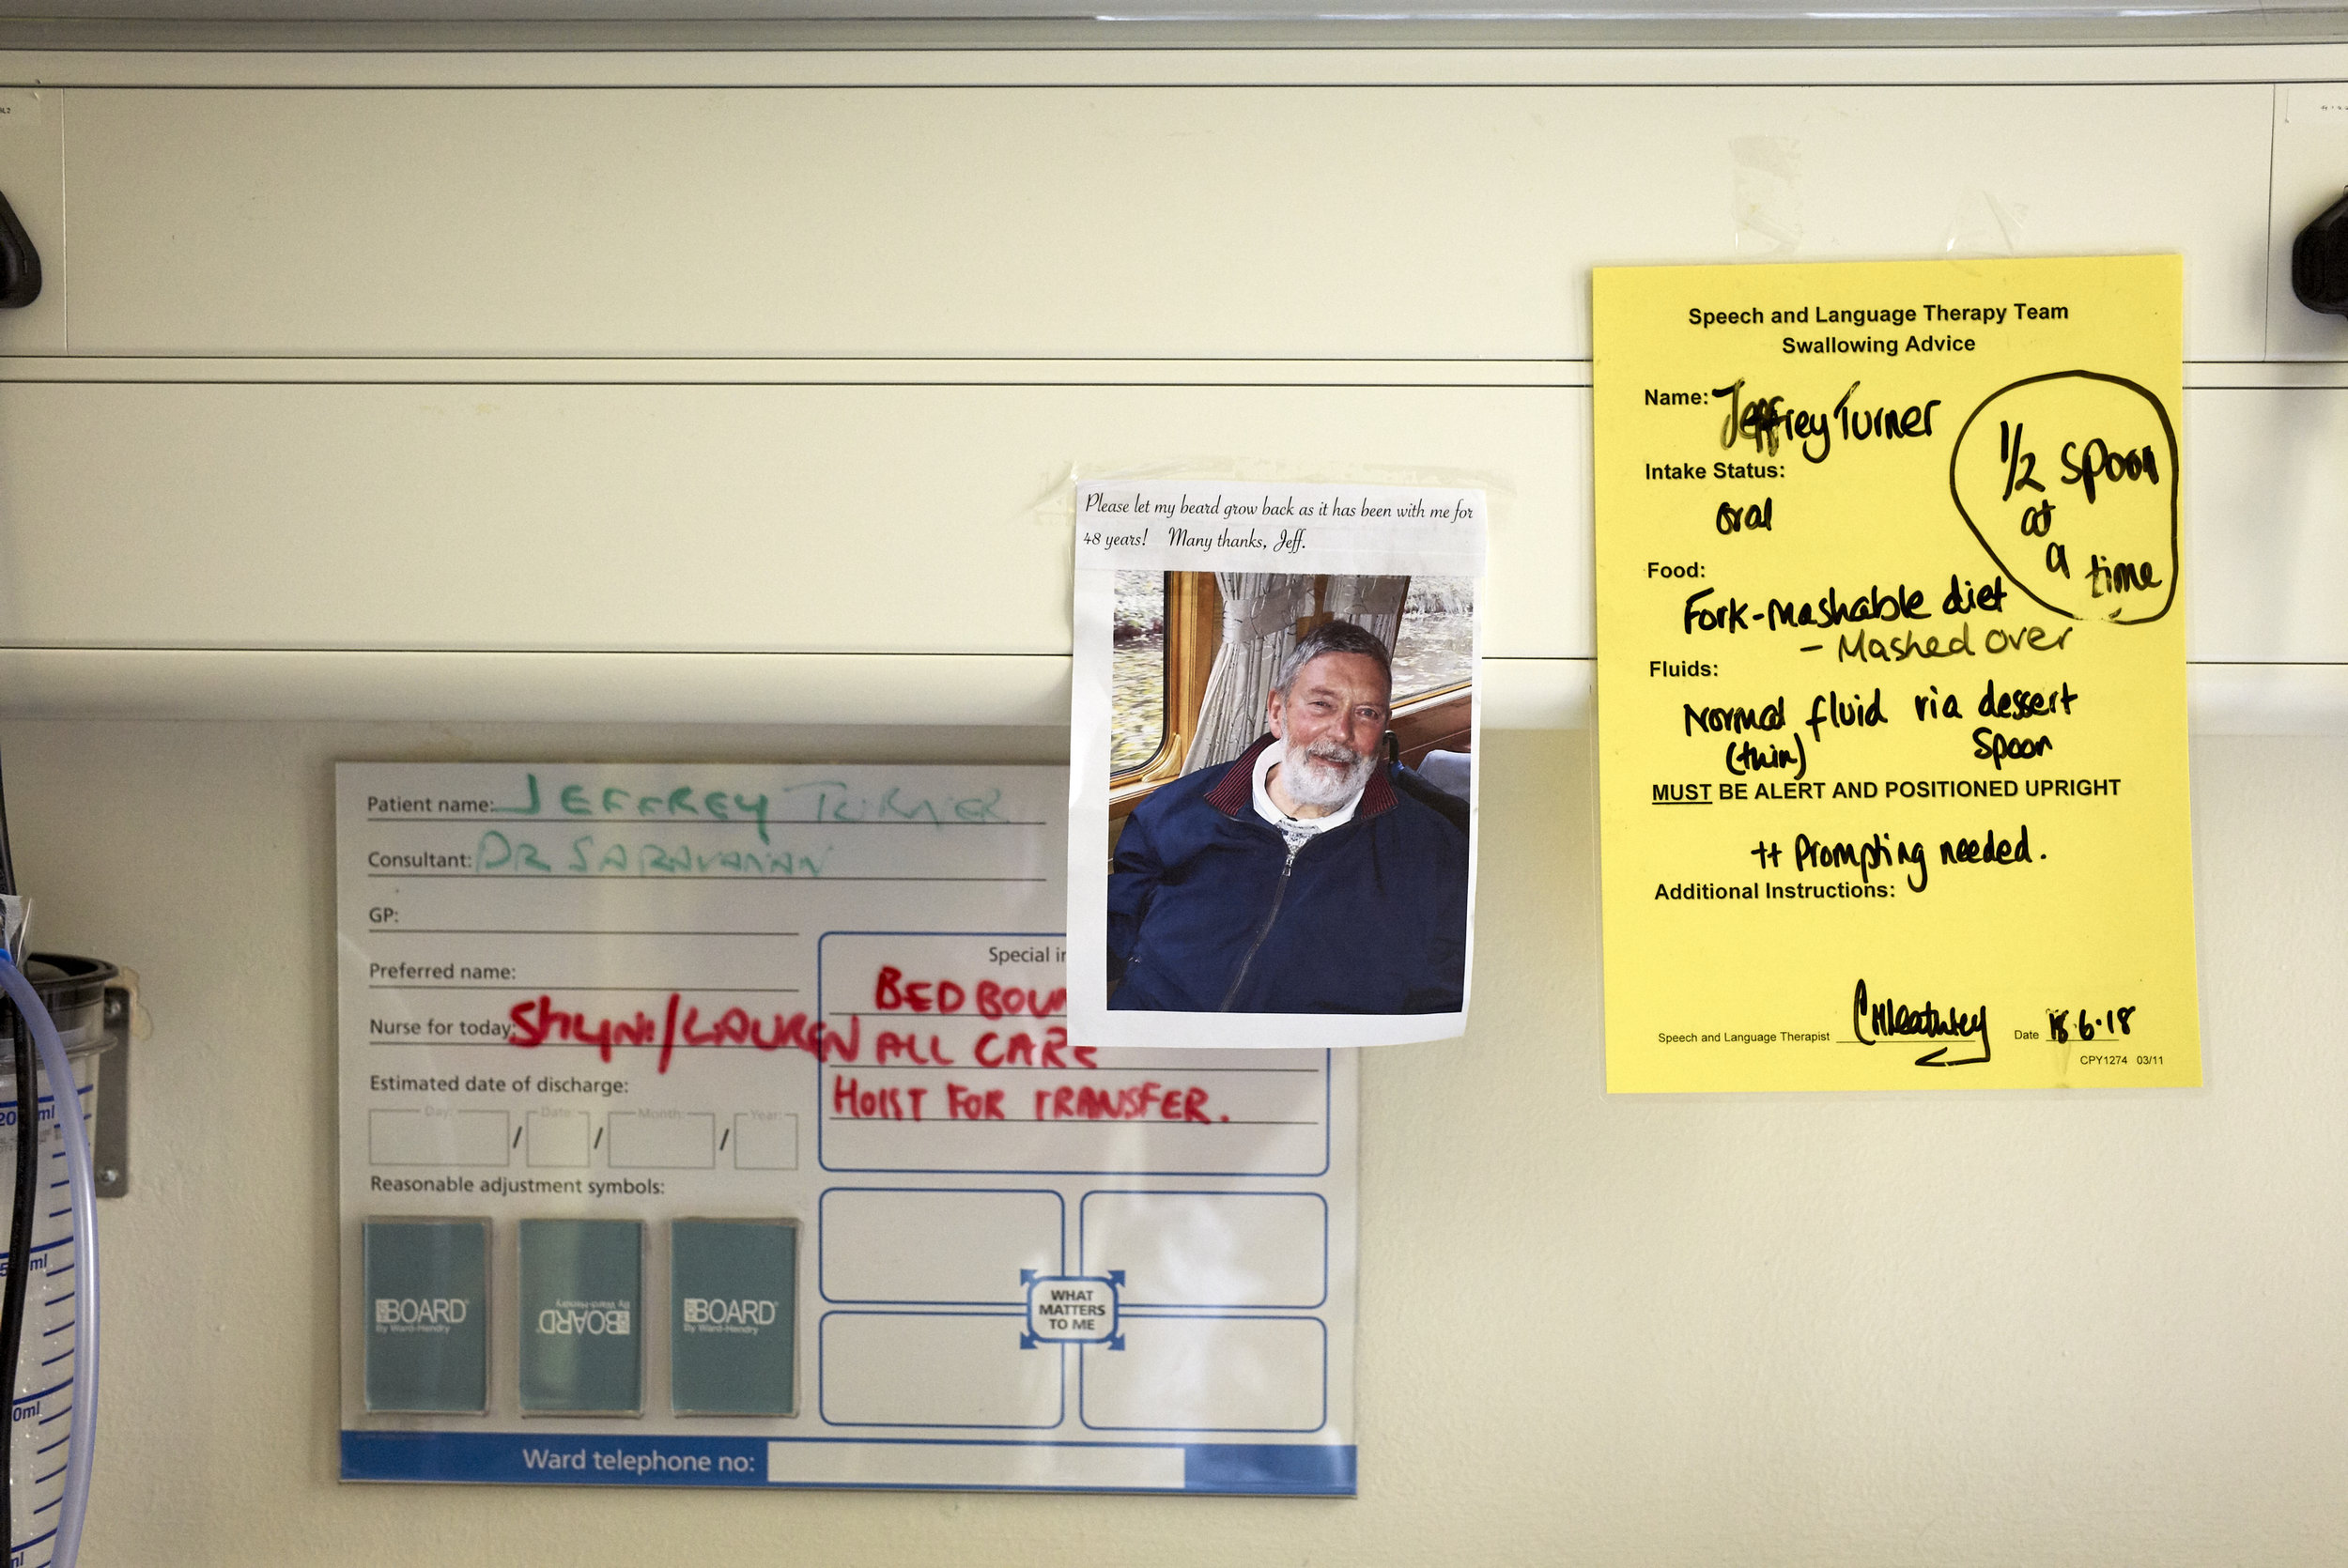 Please let my beard grow back as it has been with me for
48 years! Many thanks, Jeff.
Patient name: JEFFREY TURNER
Consultant: DR SARAVANAN
GP:
Preferred name:
Nurse for today: Shyni/LAUREN
Estimated date of discharge:
Day: / Date: / Month: / Year:
Reasonable adjustment symbols:
BOARD
By Ward-Hendry
BOARD
By Ward-Hendry
BOARD
By Ward-Hendry
Special in
BED BOUN
ALL CARE
HOIST FOR TRANSFER.
WHAT
MATTERS
TO ME
Ward telephone no:
Speech and Language Therapy Team
Swallowing Advice
Name: Jeffrey Turner
Intake Status:
oral
1/2 spoon
at
a
time
Food:
Fork-Mashable diet
- Mashed over
Fluids:
Normal fluid via dessert
(thin) Spoon
MUST BE ALERT AND POSITIONED UPRIGHT
++ Prompting needed.
Additional Instructions:
Speech and Language Therapist
Date 18.6.18
CPY1274 03/11
ml
ml
0ml
ml